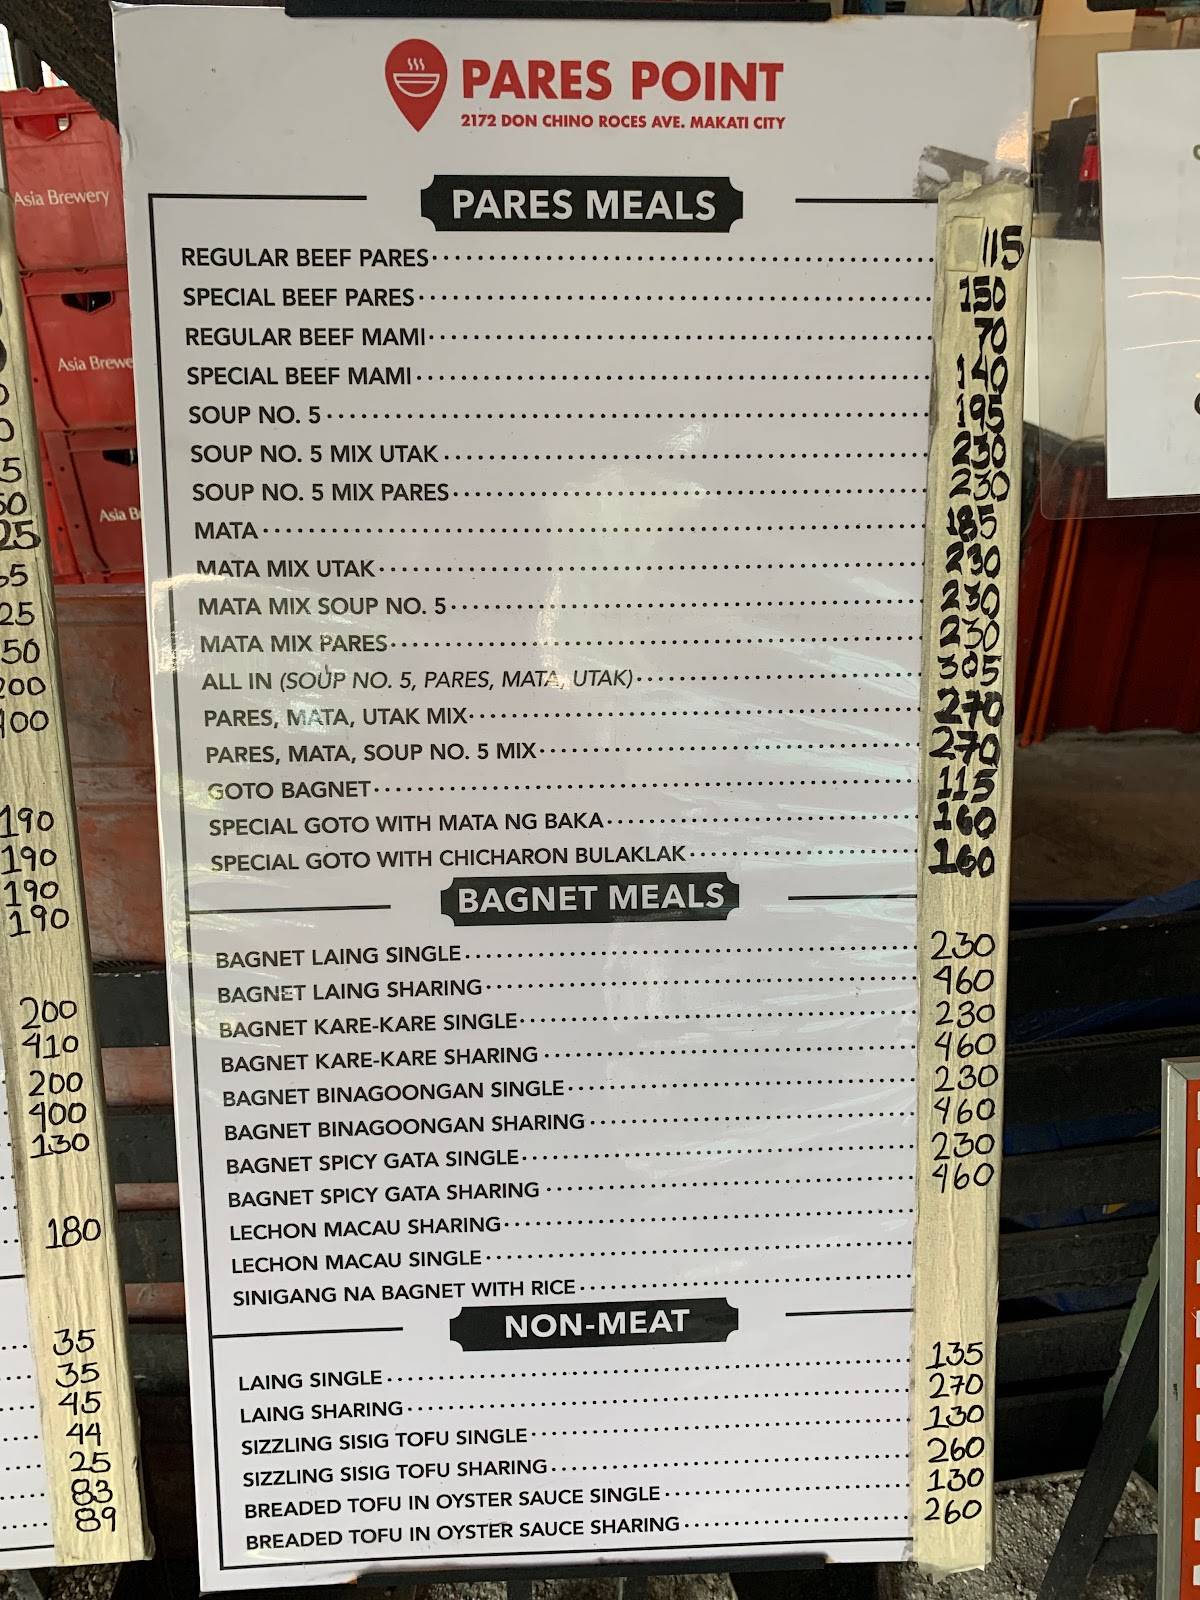 PARES POINT
2172 DON CHINO ROCES AVE. MAKATI CITY
PARES MEALS
REGULAR BEEF PARES 115
SPECIAL BEEF PARES 150
REGULAR BEEF MAMI 70
SPECIAL BEEF MAMI 140
SOUP NO. 5 195
SOUP NO. 5 MIX UTAK 230
SOUP NO. 5 MIX PARES 230
MATA 185
MATA MIX UTAK 230
MATA MIX SOUP NO. 5 230
MATA MIX PARES 230
ALL IN (SOUP NO. 5, PARES, MATA, UTAK) 305
PARES, MATA, UTAK MIX 270
PARES, MATA, SOUP NO. 5 MIX 270
GOTO BAGNET 115
SPECIAL GOTO WITH MATA NG BAKA 160
SPECIAL GOTO WITH CHICHARON BULAKLAK 160
BAGNET MEALS
BAGNET LAING SINGLE 230
BAGNET LAING SHARING 460
BAGNET KARE-KARE SINGLE 230
BAGNET KARE-KARE SHARING 460
BAGNET BINAGOONGAN SINGLE 230
BAGNET BINAGOONGAN SHARING 460
BAGNET SPICY GATA SINGLE 230
BAGNET SPICY GATA SHARING 460
LECHON MACAU SHARING
LECHON MACAU SINGLE
SINIGANG NA BAGNET WITH RICE
NON-MEAT
LAING SINGLE 135
LAING SHARING 270
SIZZLING SISIG TOFU SINGLE 130
SIZZLING SISIG TOFU SHARING 260
BREADED TOFU IN OYSTER SAUCE SINGLE 130
BREADED TOFU IN OYSTER SAUCE SHARING 260
Asia Brewery
Asia Brewe
Asia B
190
190
190
190
200
410
200
400
130
180
35
35
45
44
25
83
89